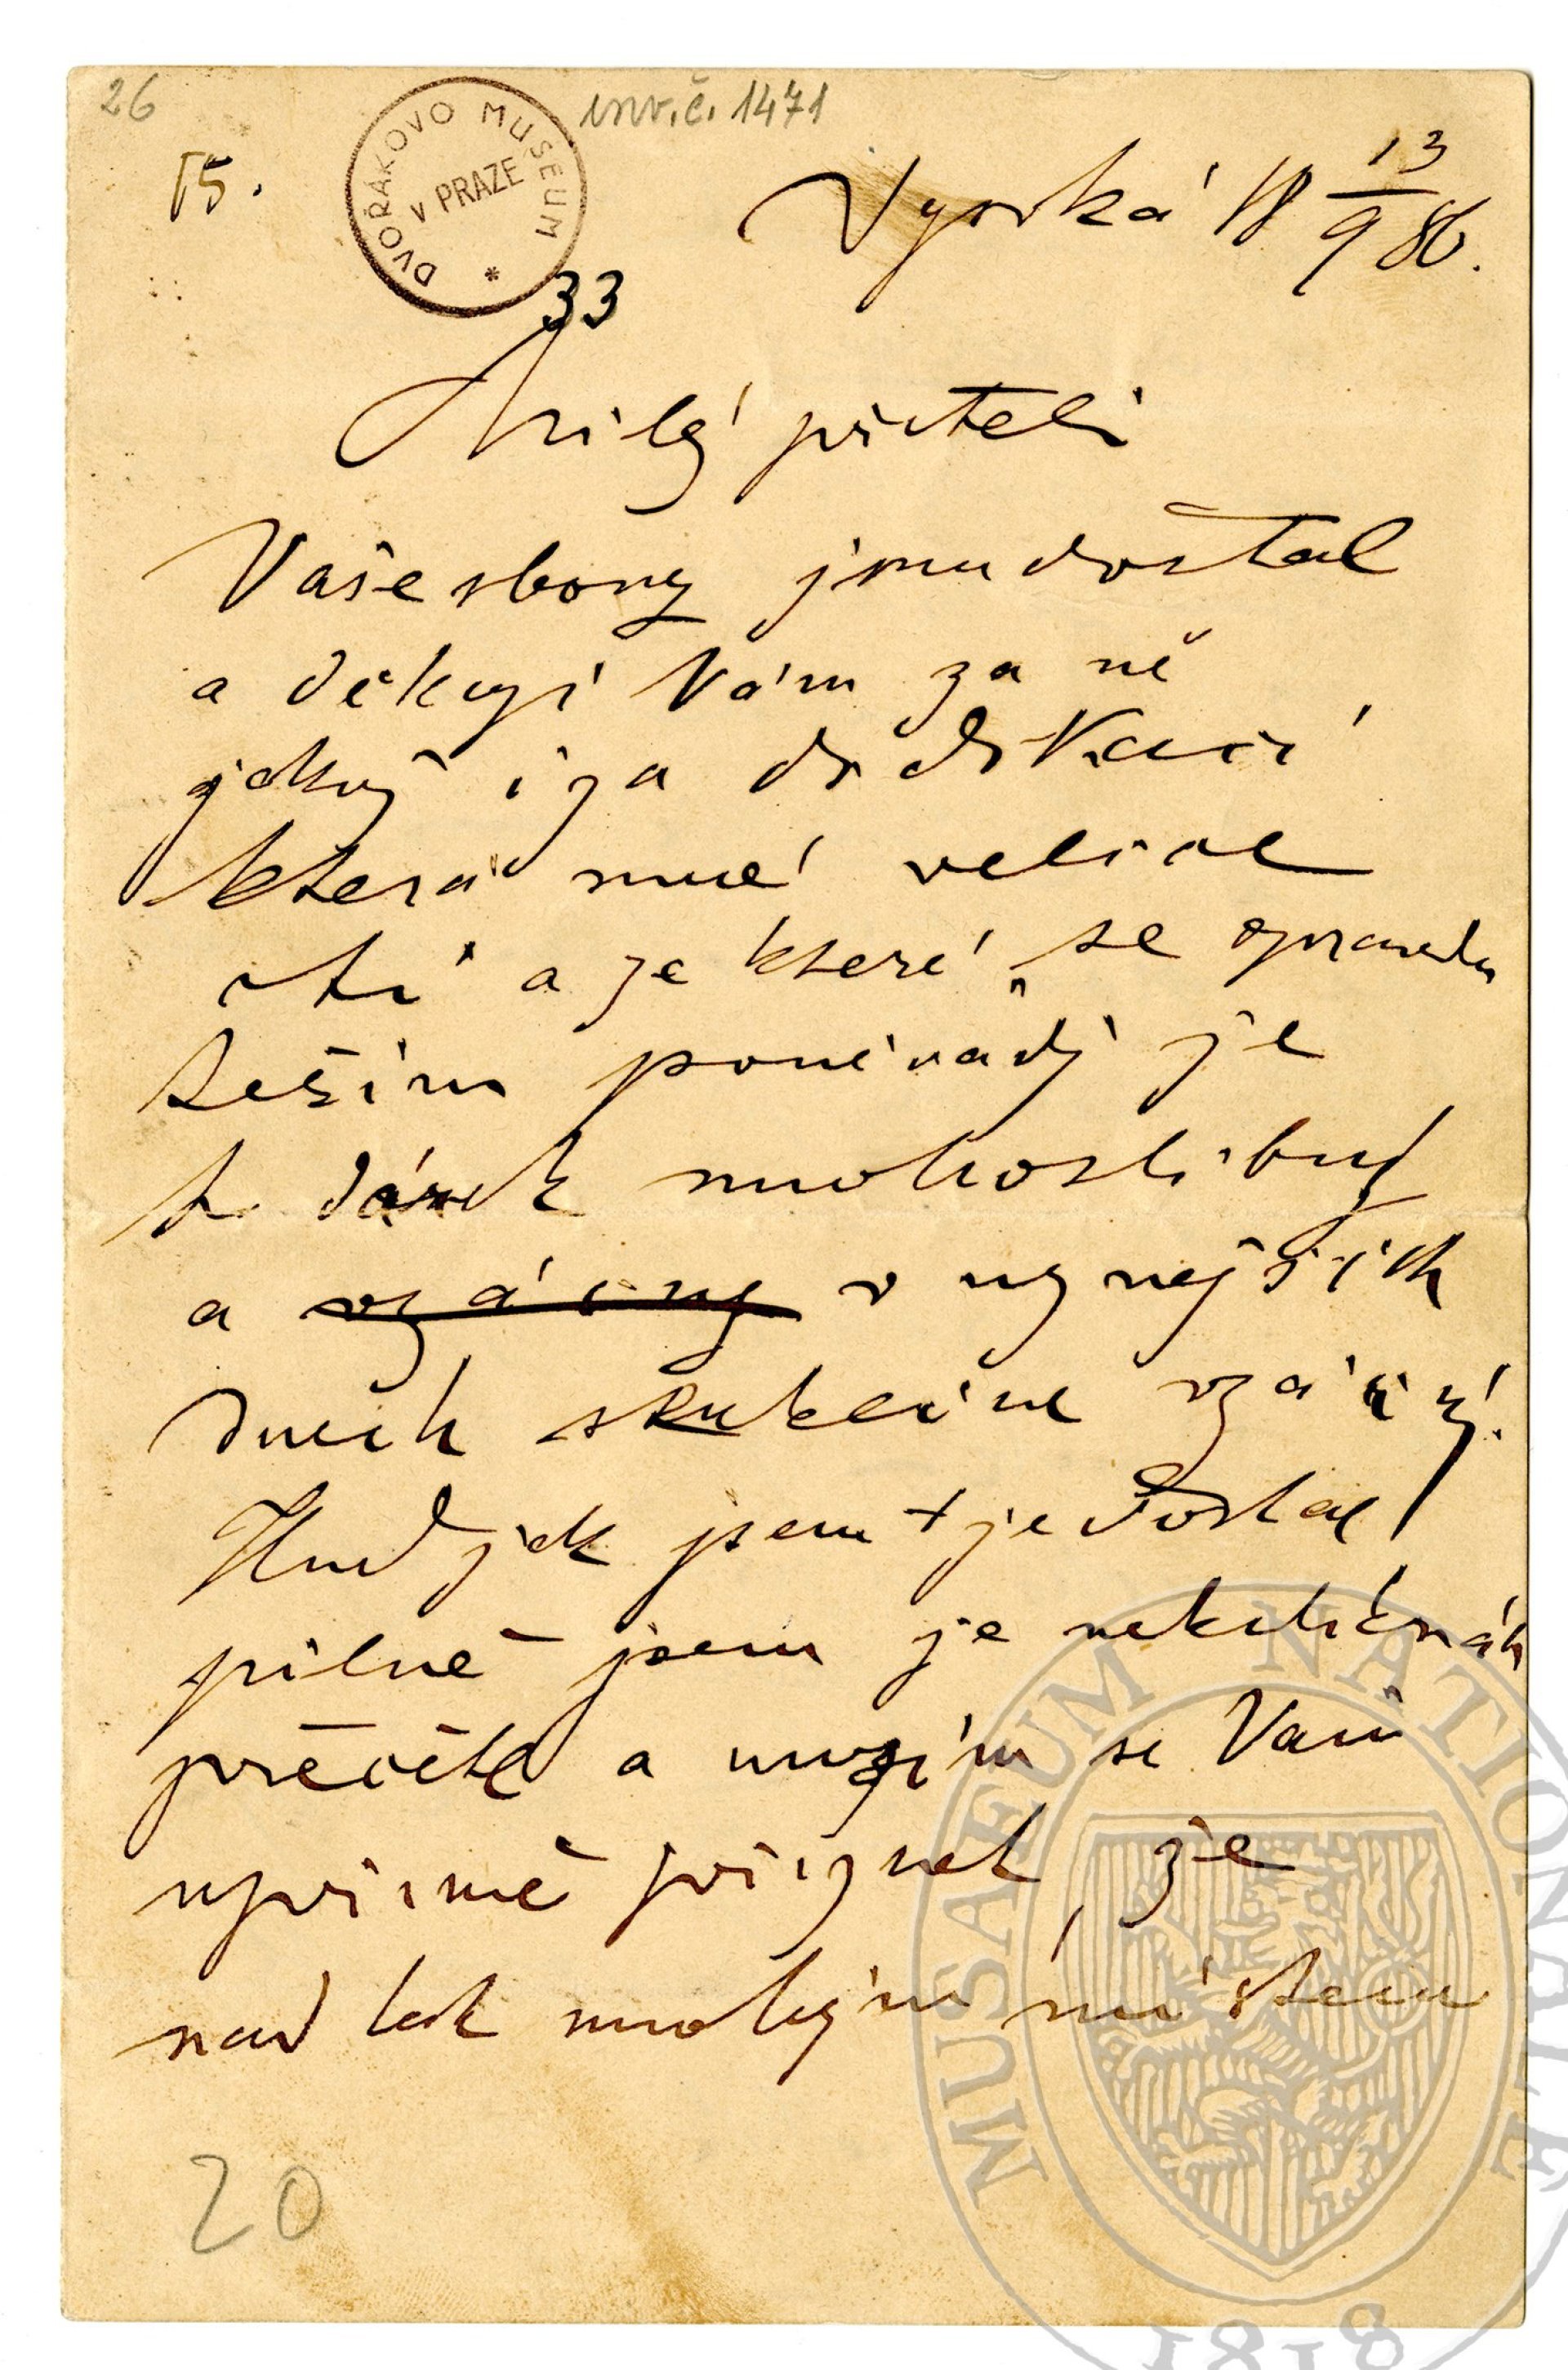 26
inv.č. 1471
15.
DVOŘÁKOVO MUSEUM
v PRAZE
*
Vysoká 18 13/9 86.
33
Milý příteli
Vaše sbory jsem dostal
a děkuji Vám za ně
jakož i za dedikaci
která mně velice
ctí a ze které se opravdu
teším poněvádž je
to dárek mnohoslibný
a vzácny v nynejších
dnech skutečne vzácný.
Hned jak jsem je dostal
pilně jsem je nekolikráte
přečetl a mosím se Vám
upřimně přiznat, že
nad tak mnohým místem
20
MUSAEUM NATIONALE
1818